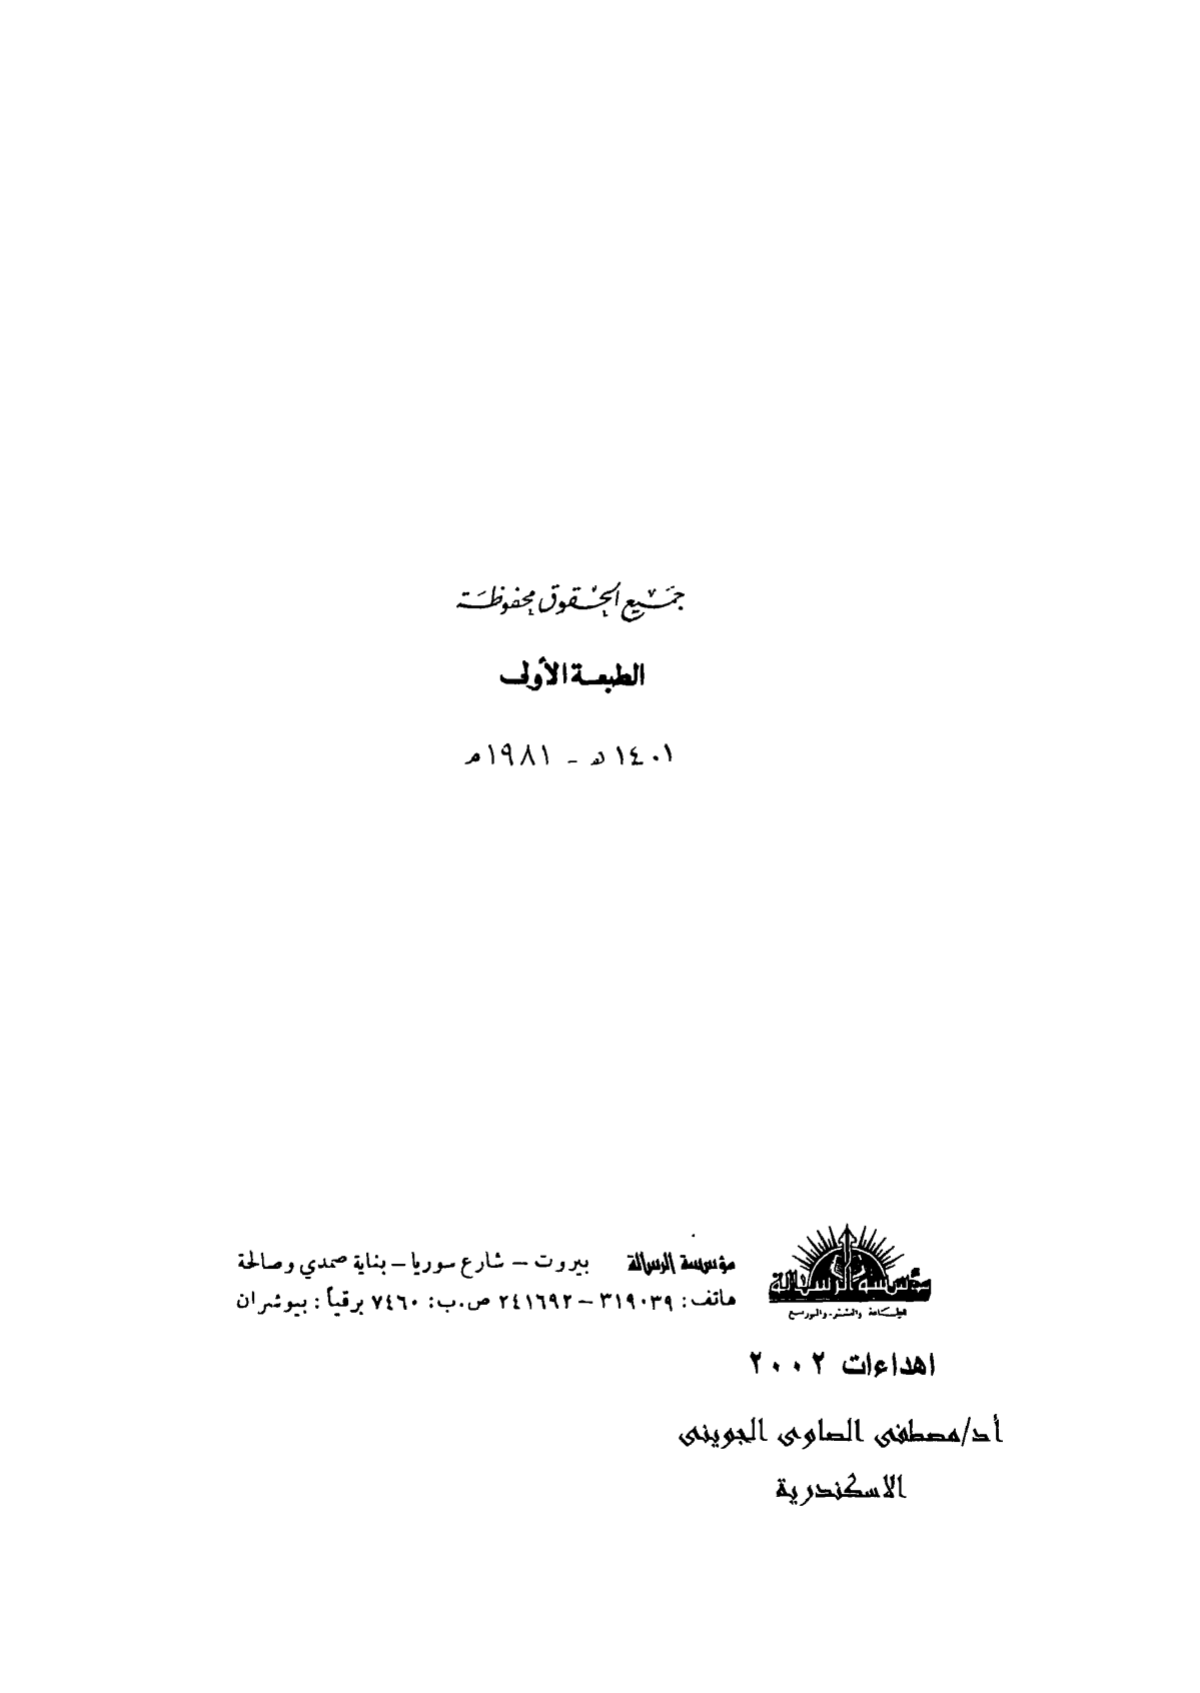 جميع الحقوق محفوظة
الطبعة الأولى
١٤٠١ هـ - ١٩٨١ م
مؤسسة الرسالة
للطباعة والنشر والتوزيع
مؤسسة الرسالة بيروت – شارع سوريا – بناية صمدي وصالحة
هاتف : ٣١٩٠٣٩ – ٢٤١٦٩٢ ص.ب: ٧٤٦٠ برقياً : بيوشران
اهداءات ٢٠٠٢
أد/مصطفى الصاوى الجوينى
الاسكندرية